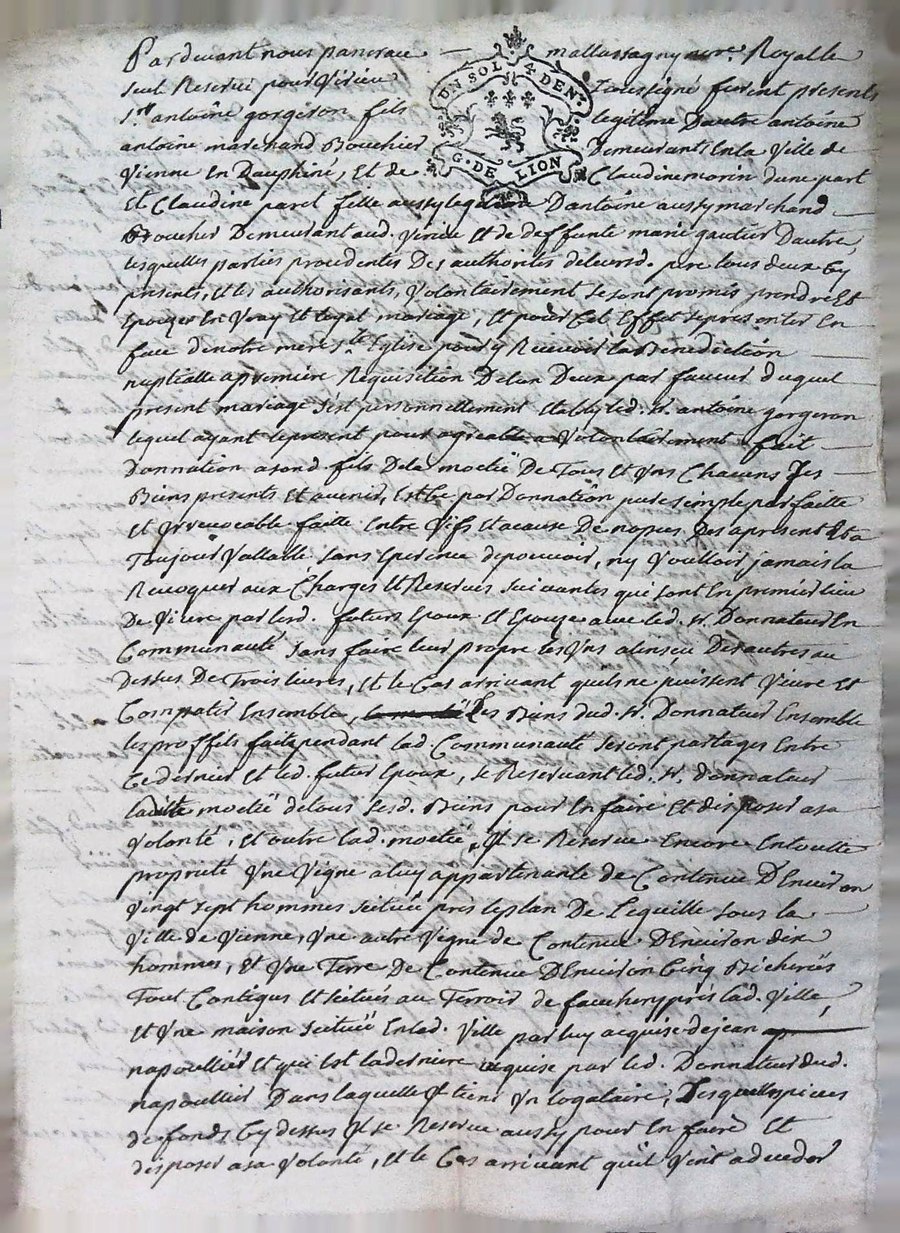 Pardevant nous pancrace — mallassagny nore. Royalle
seul Reservé pour Vienne soussigné furent presents
Sr. antoine gorgeron fils legitime Dautre antoine
antoine marchand Bouchier Demeurants En la Ville de
Vienne En Dauphiné, Et de Claudine morin dune part
UN SOL 4 DENs.
G. DE LION
Et Claudine parel fille aussy legitime Dantoine aussy marchand
Boucher Demeurant aud. Viene Et de deffunte marie gautier Dautre,
lesquelles parties procedentes Des authorités deleursd. pere tous deux Cy
presents, Et les authorisants, Volontairement se sont promis prendre Et
Epouzer En Vray Et legal mariage, Et pour Cet Effet se presenter En
face de notre mere Ste. Eglise pour y Recevoir la Benediction
nuptialle a premiere Requisition De lun Deux par faveur duquel
present mariage s'est personnellement Etably led. sr. antoine gorgeron
lequel ayant le present pour agreable a Volontairement fait
Donnation a sond. fils De la moetié De Tous Et Uns Chacuns Ses
Biens presents Et avenir, Est ce par Donnation pure simple parfaitte
Et Irrevocable faitte Entre Vifs Et a cause De nopces Des apresent Et a
Toujour Vallable sans Esperence de pouvoir, ny Voulloir jamais la
Revoquer aux Charges Et Reserves suivantes qui sont En premier lieu
De Vivre par lesd. futurs Epoux Et Epouze avec led. sr. Donnateur En
Communauté sans faire leur propre les Uns a linsçu Des autres au
dessus De Trois livres, Et le Cas arrivant quils ne puissent Vivre Et
Compatir Ensemble, Les Biens dud. sr. Donnateur Ensemble
les proffits faits pendant lad. Communauté seront partagés Entre
Ce dernier Et led. futur Epoux, se Reservant led. sr. donnateur
laditte moetié de tous sesd. Biens pour En faire Et disposer a sa
Volonté, Et outre lad. moetié, Il se Reserve Encore En toutte
proprieté Une Vigne a luy appartenante de Contenue D'Environ
Vingt sept hommes scituée près le plan De Leguille sous la
Ville de Vienne, Une autre Vigne de Contenue D'Environ dix
hommes, Et Une Terre De Contenue D'Environ Cinq Bicherées
Tout Contigus Et scitués au Terroir de fauchery près lad. Ville,
Et Une maison scituée En lad. Ville par luy acquise de jean
napoullier Et qui Est la derniere acquise par led. Donnateur dud.
napoullier Dans laquelle Il tient Un logataire, Desquelles pieces
de fonds Cy dessus Il se Reserve aussy pour En faire Et
disposer a sa Volonté, Et le Cas arrivant qu'il Vint a deceder